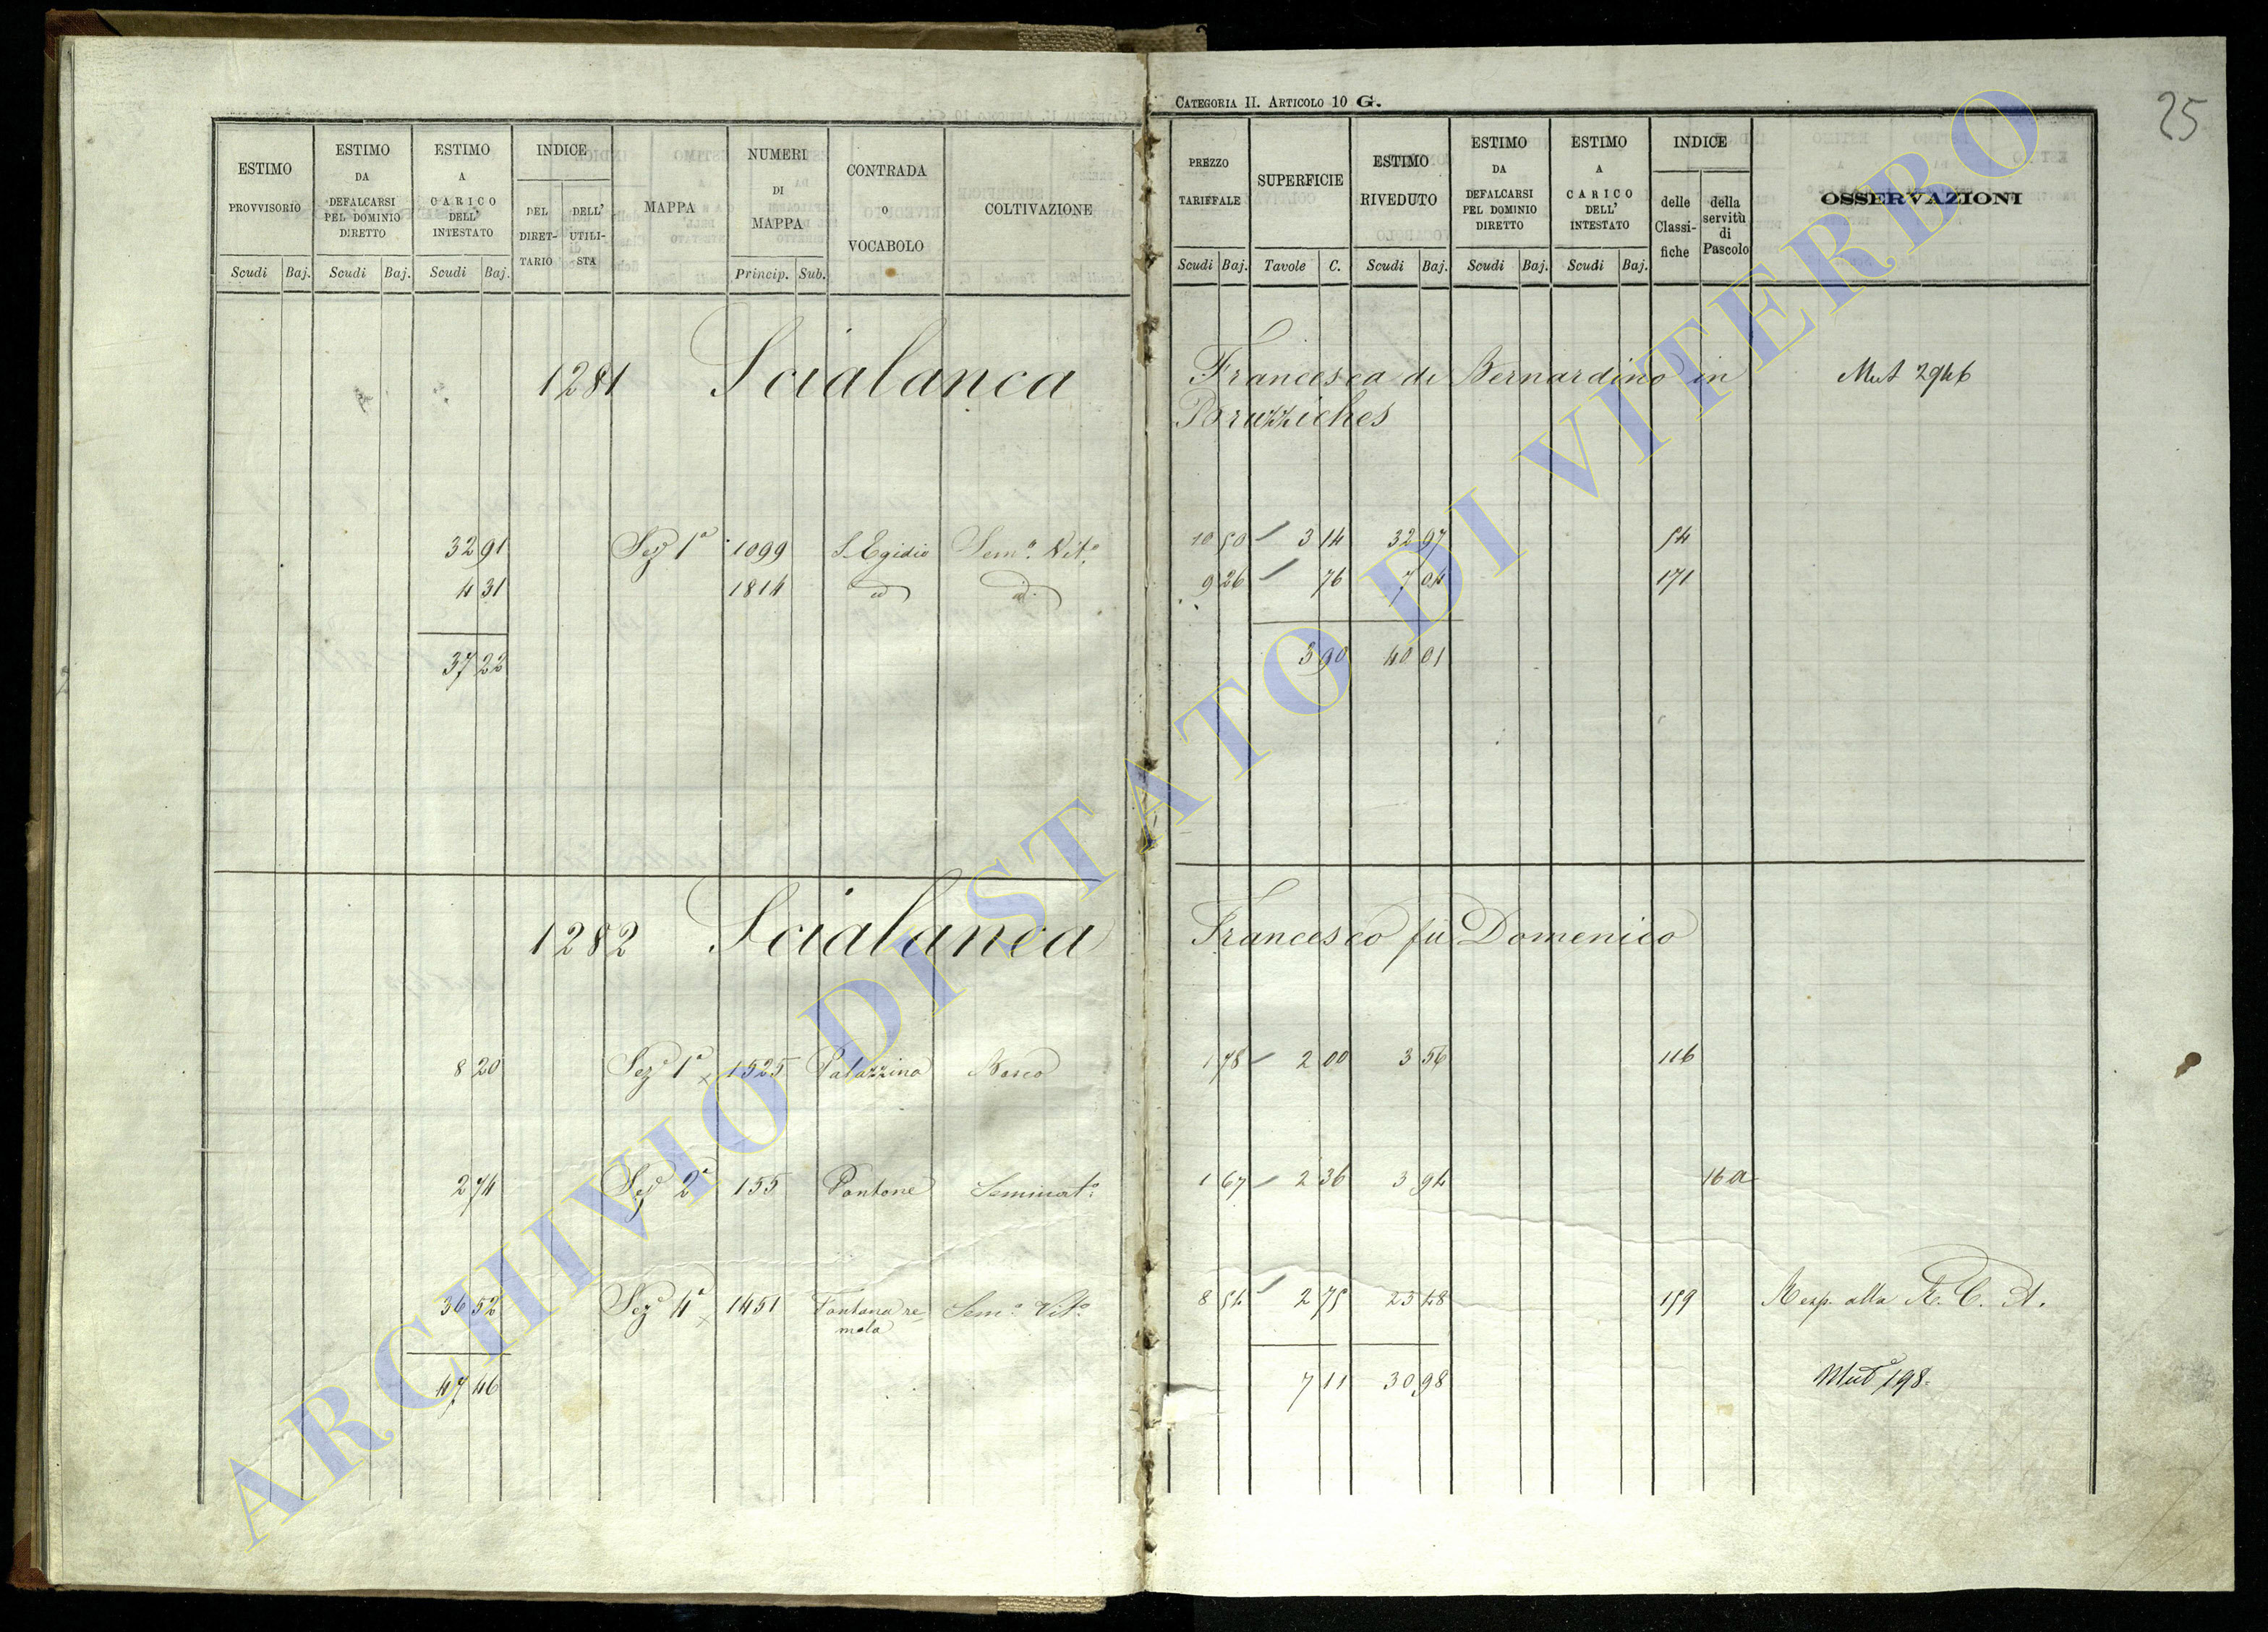 CATEGORIA II. ARTICOLO 10 G.
25
ESTIMO PROVVISORIO
ESTIMO DA DEFALCARSI PEL DOMINIO DIRETTO
ESTIMO A CARICO DELL' INTESTATO
INDICE
DEL DIRET-TARIO
DELL' UTILI-STA
MAPPA
NUMERI DI MAPPA
CONTRADA O VOCABOLO
COLTIVAZIONE
Scudi Baj. Scudi Baj. Scudi Baj. Princip. Sub.
PREZZO TARIFFALE
SUPERFICIE
ESTIMO RIVEDUTO
ESTIMO DA DEFALCARSI PEL DOMINIO DIRETTO
ESTIMO A CARICO DELL' INTESTATO
INDICE
delle Classi-fiche
della servitù di Pascolo
OSSERVAZIONI
Scudi Baj. Tavole C. Scudi Baj. Scudi Baj. Scudi Baj.
1281 Scialanca Francesca di Bernardino in Mut 2946
Bruzziches
32 91 Sezᵉ 1ª 1099 S. Egidio Semº. Vitº 10 50 3 14 32 97 54
4 31 1814 id id 9 26 76 7 04 171
37 22 3 90 40 01
1282 Scialanca Francesco fu Domenico
8 20 Sezᵉ 1ª 1525 Palazzina Bosco 1 78 2 00 3 56 116
2 74 Sezᵉ 2ª 155 Pontone Seminatº. 1 67 2 36 3 94 16 a
36 52 Sezᵉ 4ª 1451 Fontana re- Semº. Vitº. 8 54 2 75 23 48 159 Resp. alla R. C. A.
mola
47 46 7 11 30 98 Mut 198.
ARCHIVIO DI STATO DI VITERBO